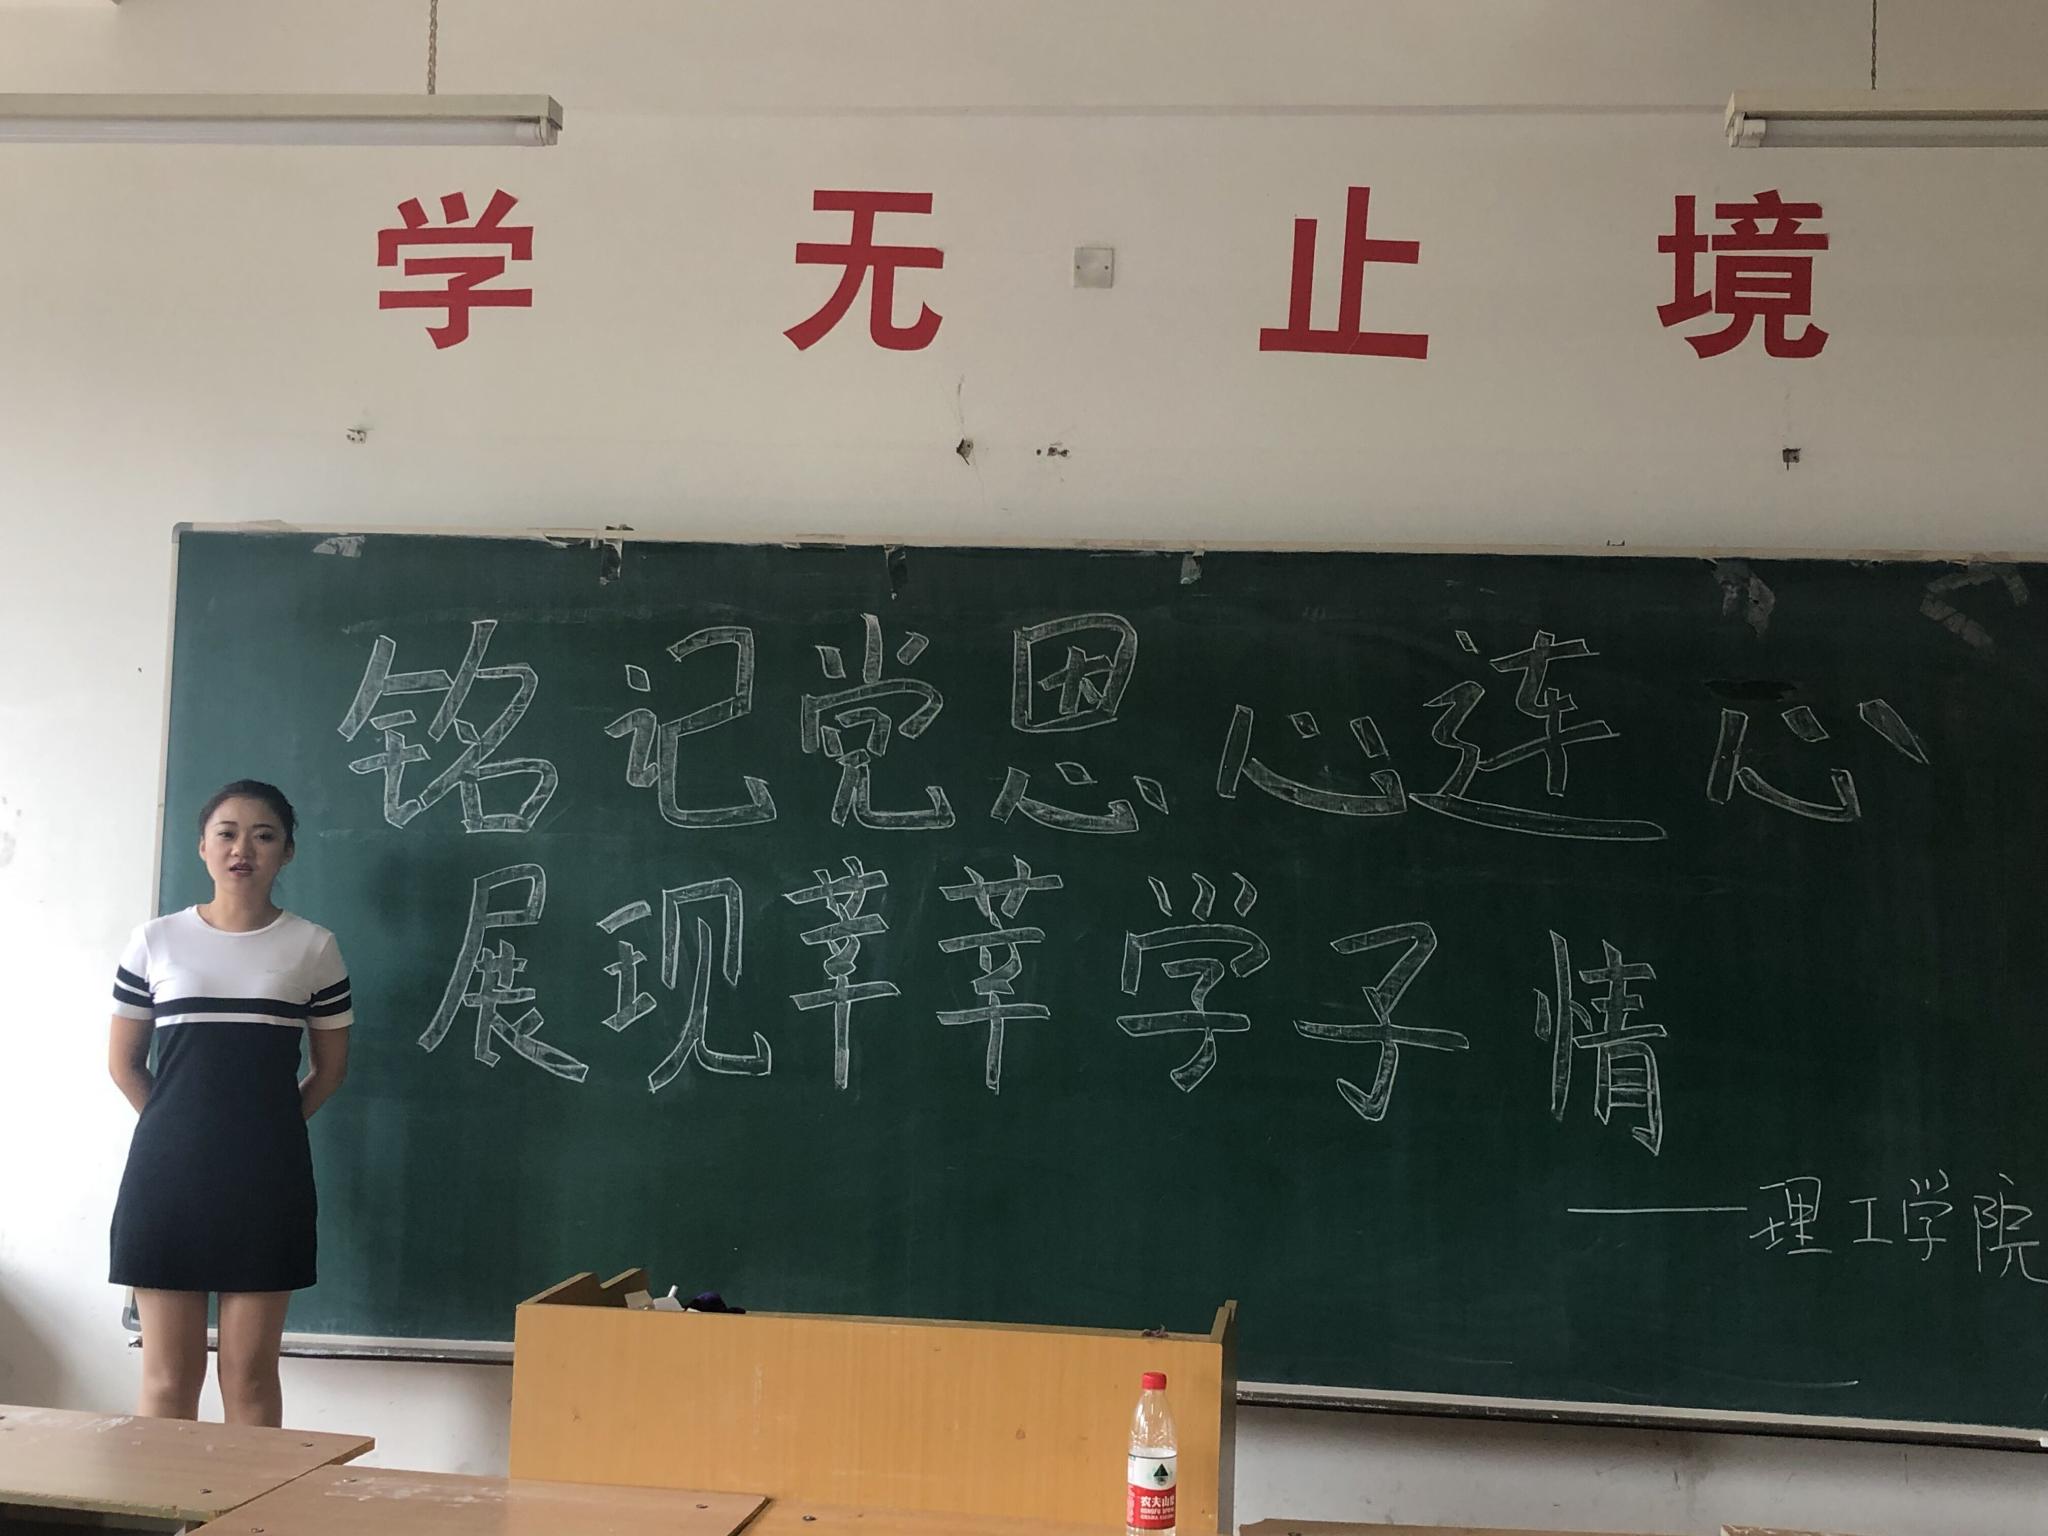 学无止境
铭记党恩心连心
展现莘莘学子情
——理工学院
农夫山泉